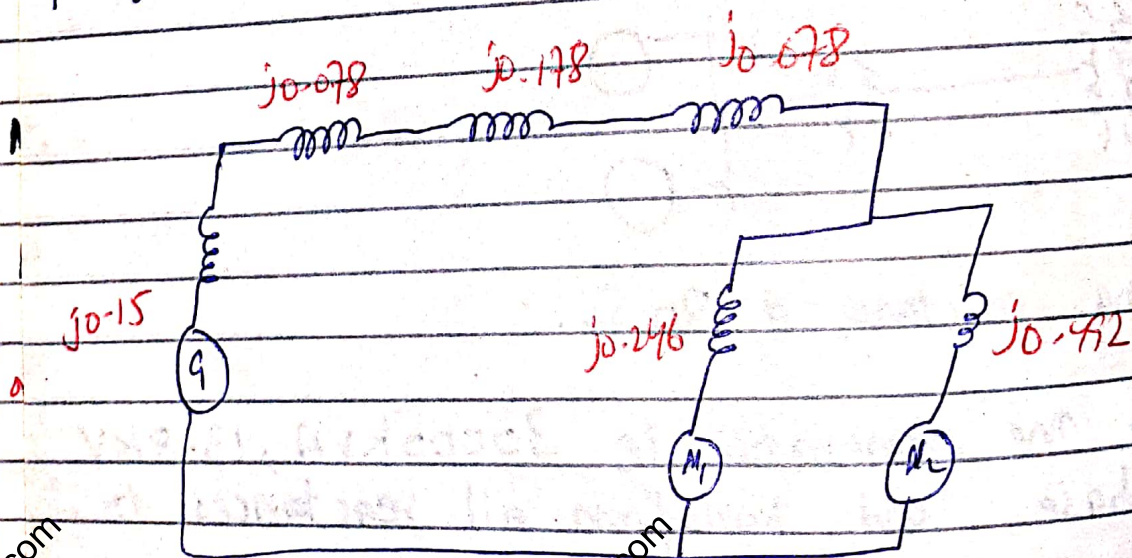 j0.078 j0.178 j0.078
j0.15
G
j0.246
j0.492
M1
M2
com
com